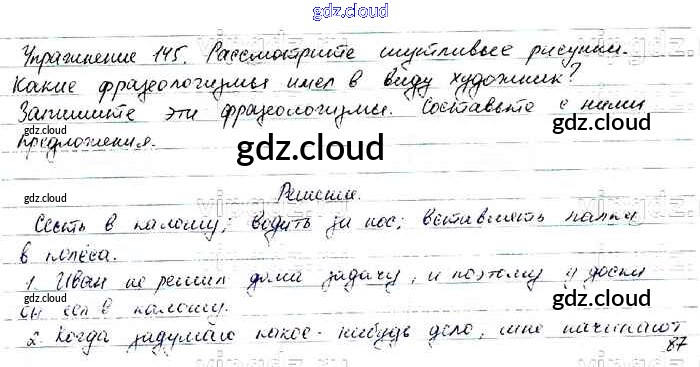 gdz.cloud
Упражнение 145. Рассмотрите шутливые рисунки.
Какие фразеологизмы имел в виду художник?
Запишите эти фразеологизмы. Составьте с ними
gdz.cloud gdz.cloud
предложения.
gdz.cloud
gdz.cloud Решение. gdz.cloud
Сесть в калошу; водить за нос; вставлять палки
в колёса.
1. Иван не решил дома задачу, и поэтому у доски
gdz.cloud gdz.cloud
он сел в калошу.
2. Когда задумаю какое-нибудь дело, мне начинают
87